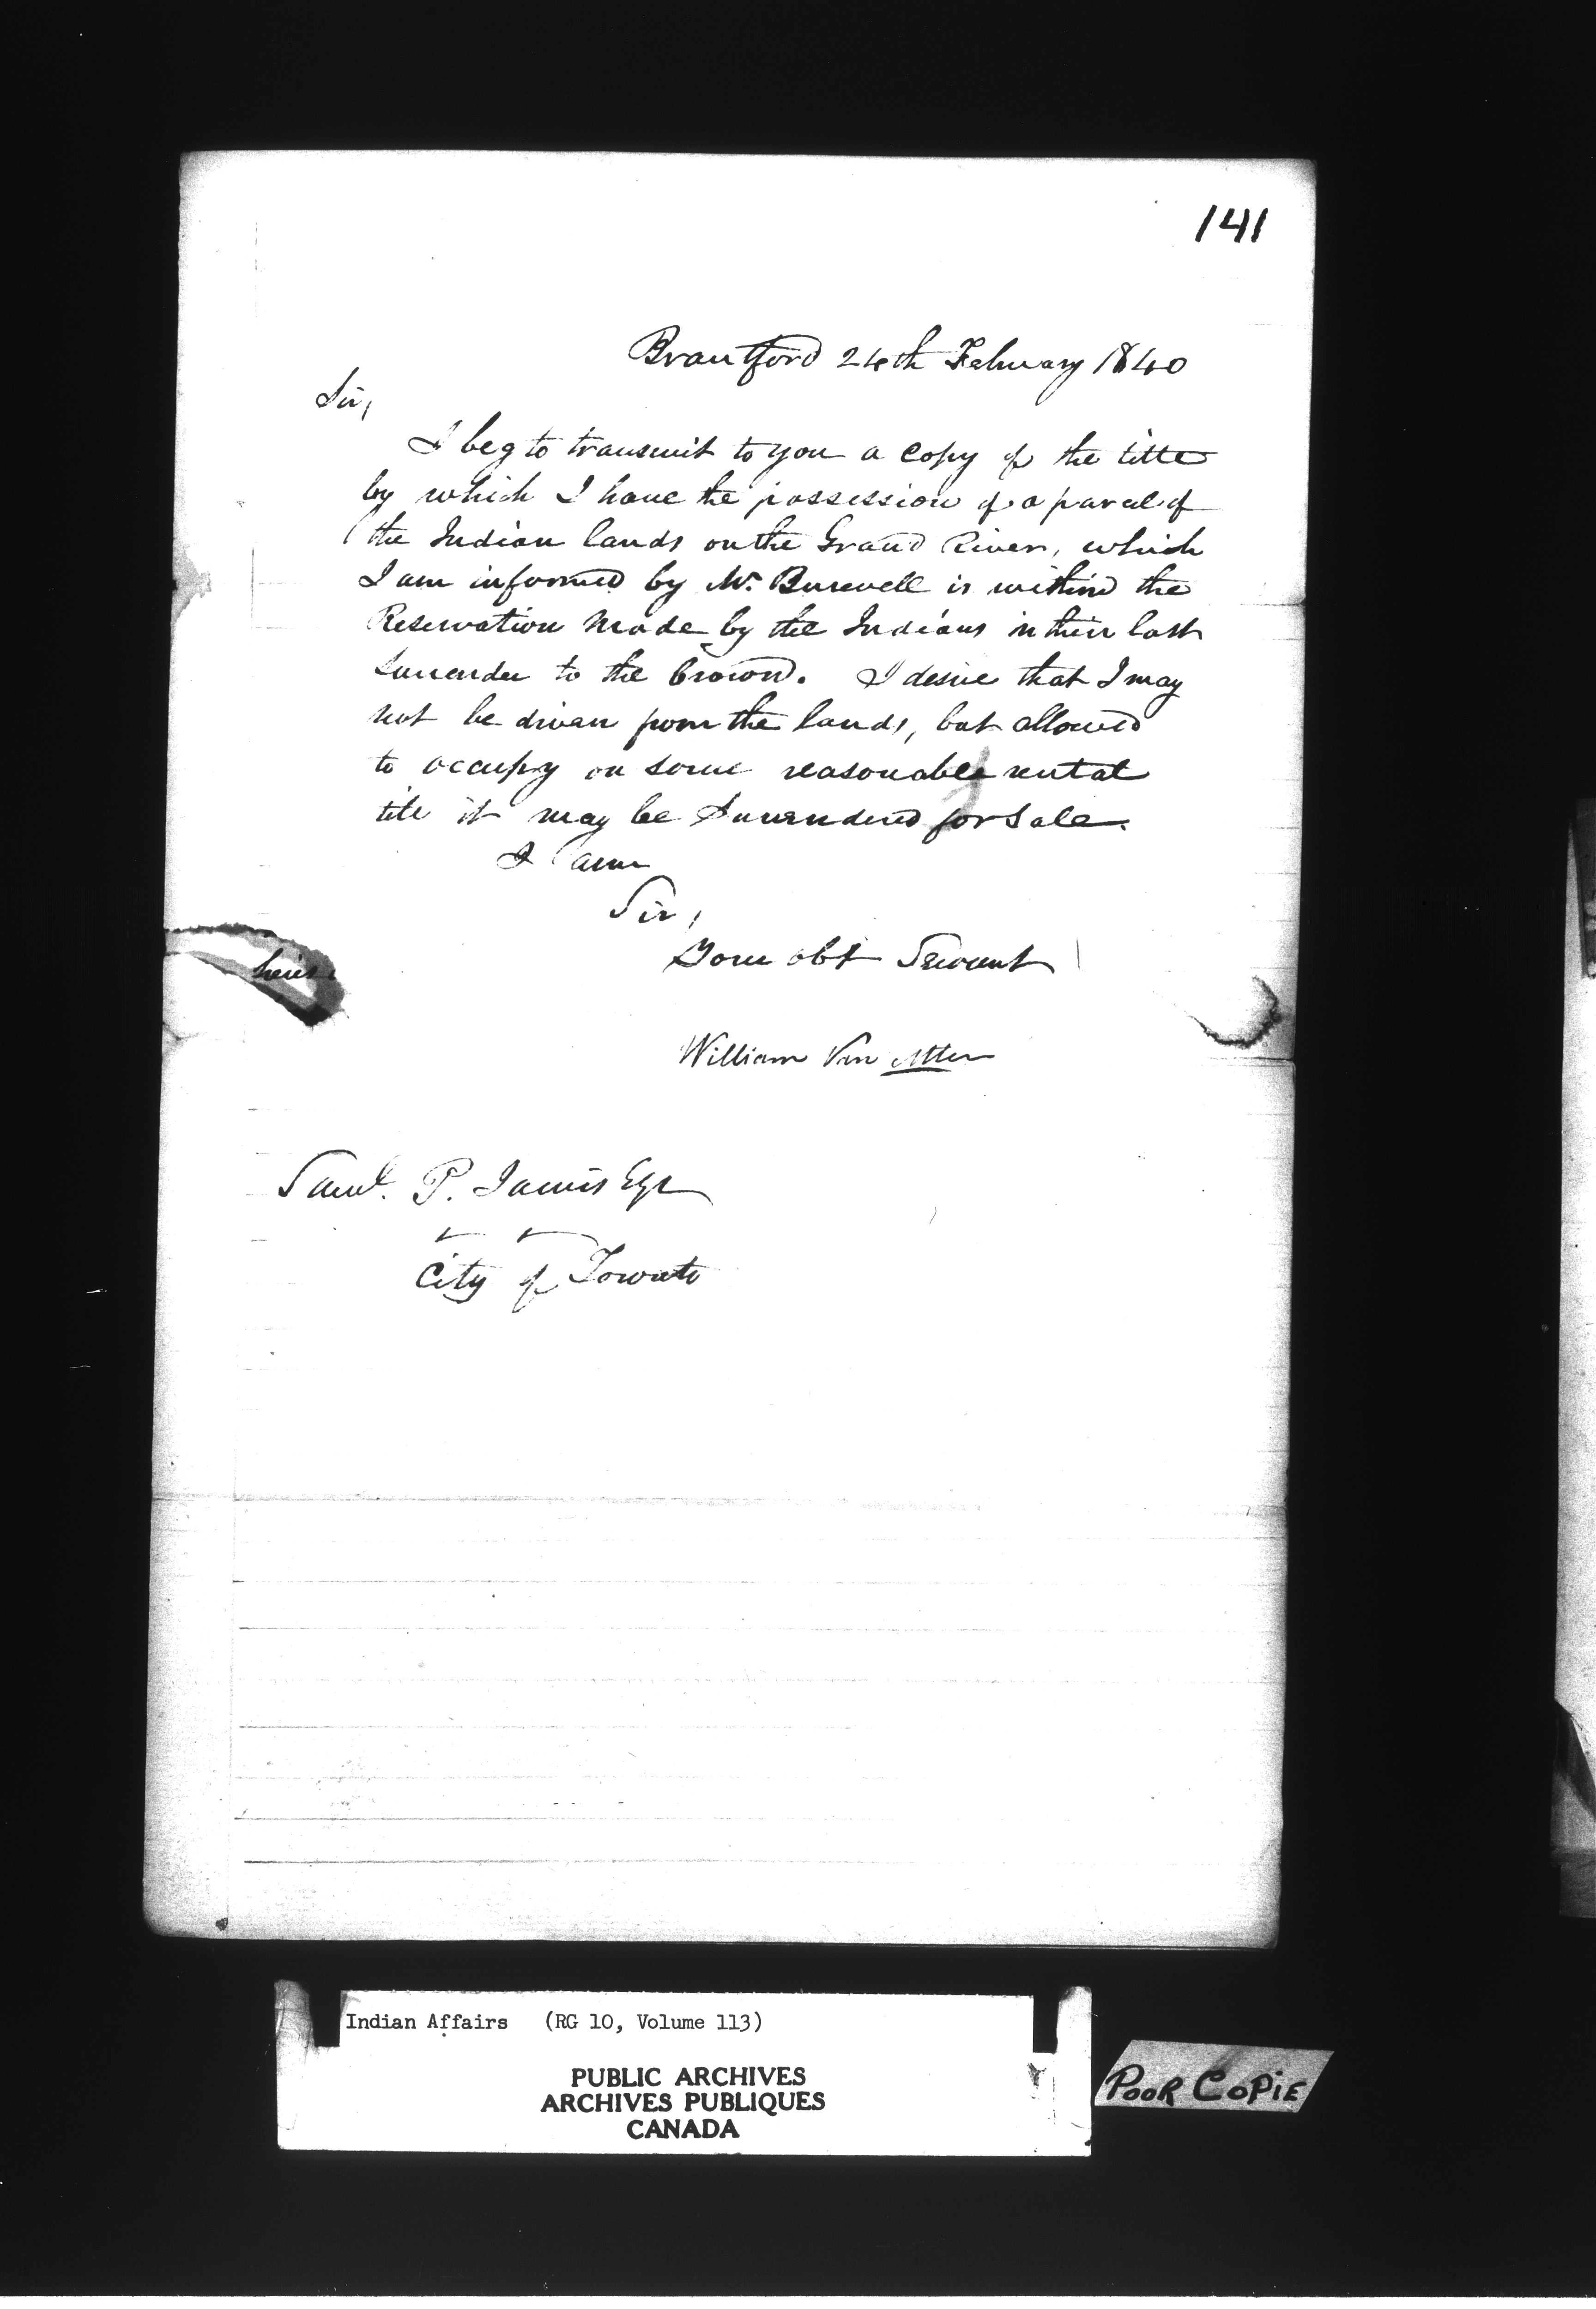 141
Brantford 24th February 1840
Sir,
I beg to transmit to you a copy of the title
by which I have the possession of a parcel of
the Indian lands on the Grand River, which
I am informed by Mr. Burwell is within the
Reservation made by the Indians in their last
Surrender to the Crown. I desire that I may
not be driven from the lands, but allowed
to occupy on some reasonable rental
till it may be Surrendered for Sale.
I am
Sir,
Your obt Servant
William Van
Saml. P. Jarvis Esqr
City of Toronto
Indian Affairs (RG 10, Volume 113)
PUBLIC ARCHIVES
ARCHIVES PUBLIQUES
CANADA
POOR COPIE